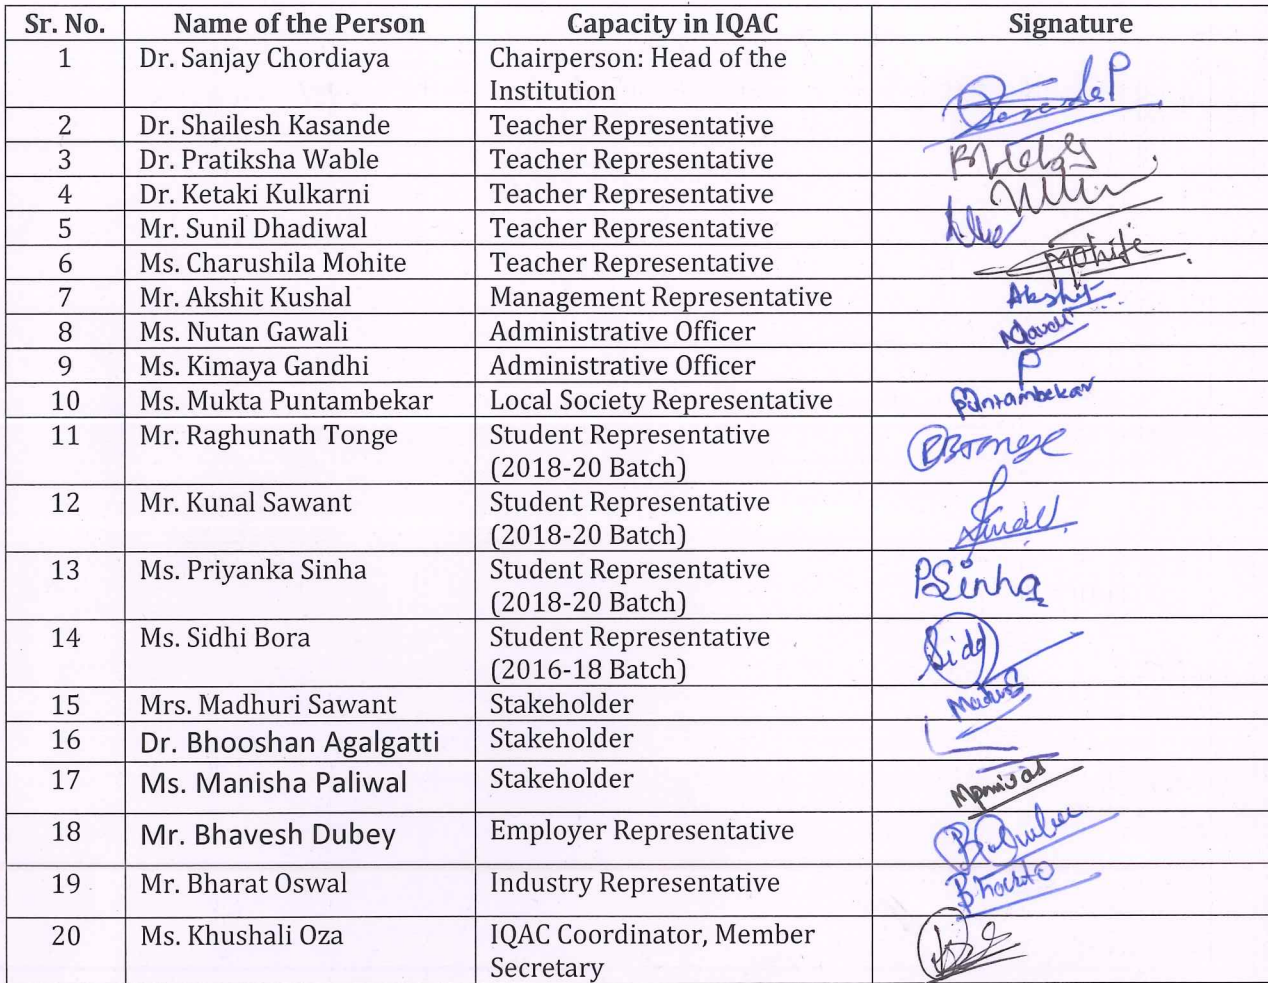 Sr. No. Name of the Person Capacity in IQAC Signature
1 Dr. Sanjay Chordiaya Chairperson: Head of the
Institution
2 Dr. Shailesh Kasande Teacher Representative
3 Dr. Pratiksha Wable Teacher Representative
4 Dr. Ketaki Kulkarni Teacher Representative
5 Mr. Sunil Dhadiwal Teacher Representative
6 Ms. Charushila Mohite Teacher Representative Mohite
7 Mr. Akshit Kushal Management Representative Akshit
8 Ms. Nutan Gawali Administrative Officer
9 Ms. Kimaya Gandhi Administrative Officer P
10 Ms. Mukta Puntambekar Local Society Representative Puntambekar
11 Mr. Raghunath Tonge Student Representative
(2018-20 Batch)
12 Mr. Kunal Sawant Student Representative
(2018-20 Batch)
13 Ms. Priyanka Sinha Student Representative PSinha
(2018-20 Batch)
14 Ms. Sidhi Bora Student Representative
(2016-18 Batch)
15 Mrs. Madhuri Sawant Stakeholder
16 Dr. Bhooshan Agalgatti Stakeholder
17 Ms. Manisha Paliwal Stakeholder
18 Mr. Bhavesh Dubey Employer Representative
19 Mr. Bharat Oswal Industry Representative
20 Ms. Khushali Oza IQAC Coordinator, Member
Secretary